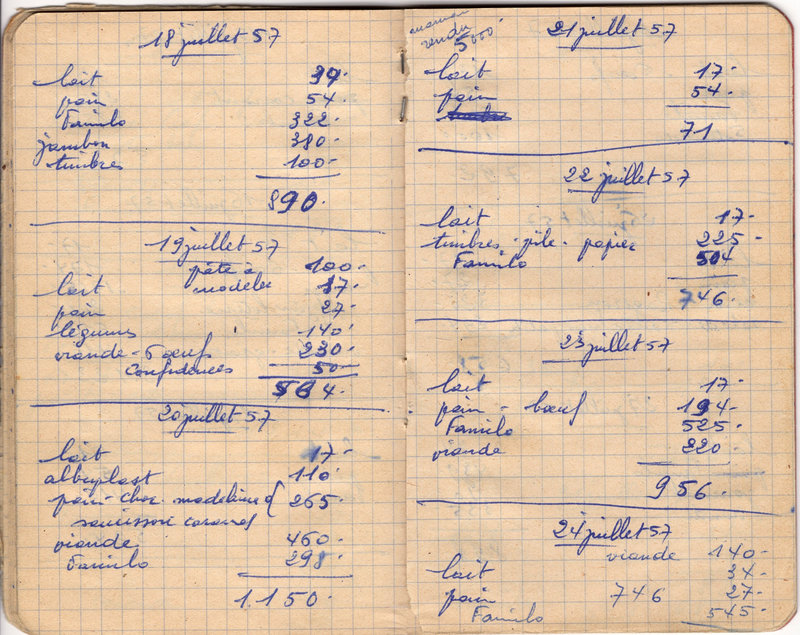 18 juillet 57
lait 34.
pain 54.
Familo 322.
jambon 380.
timbres 100.
890.
19 juillet 57
pâte à 100.
lait modeler 17.
pain 27.
légumes 140.
viande - 6 oeufs 230.
Confidences 50.
564.
20 juillet 57
lait 17.
albuplast 110.
pain - choc. madeleine 265.
saucisson
viande 460.
Familo 298.
1.150.
maman
rendu
5000.
21 juillet 57
lait 17.
pain 54.
71
22 juillet 57
lait 17.
timbres - pile - papier 225.
Familo 504
746.
23 juillet 57
lait 17.
pain - boeuf 194.
Familo 525.
viande 220.
956.
24 juillet 57
viande 140.
lait 34.
pain 746 27.
Familo 545.